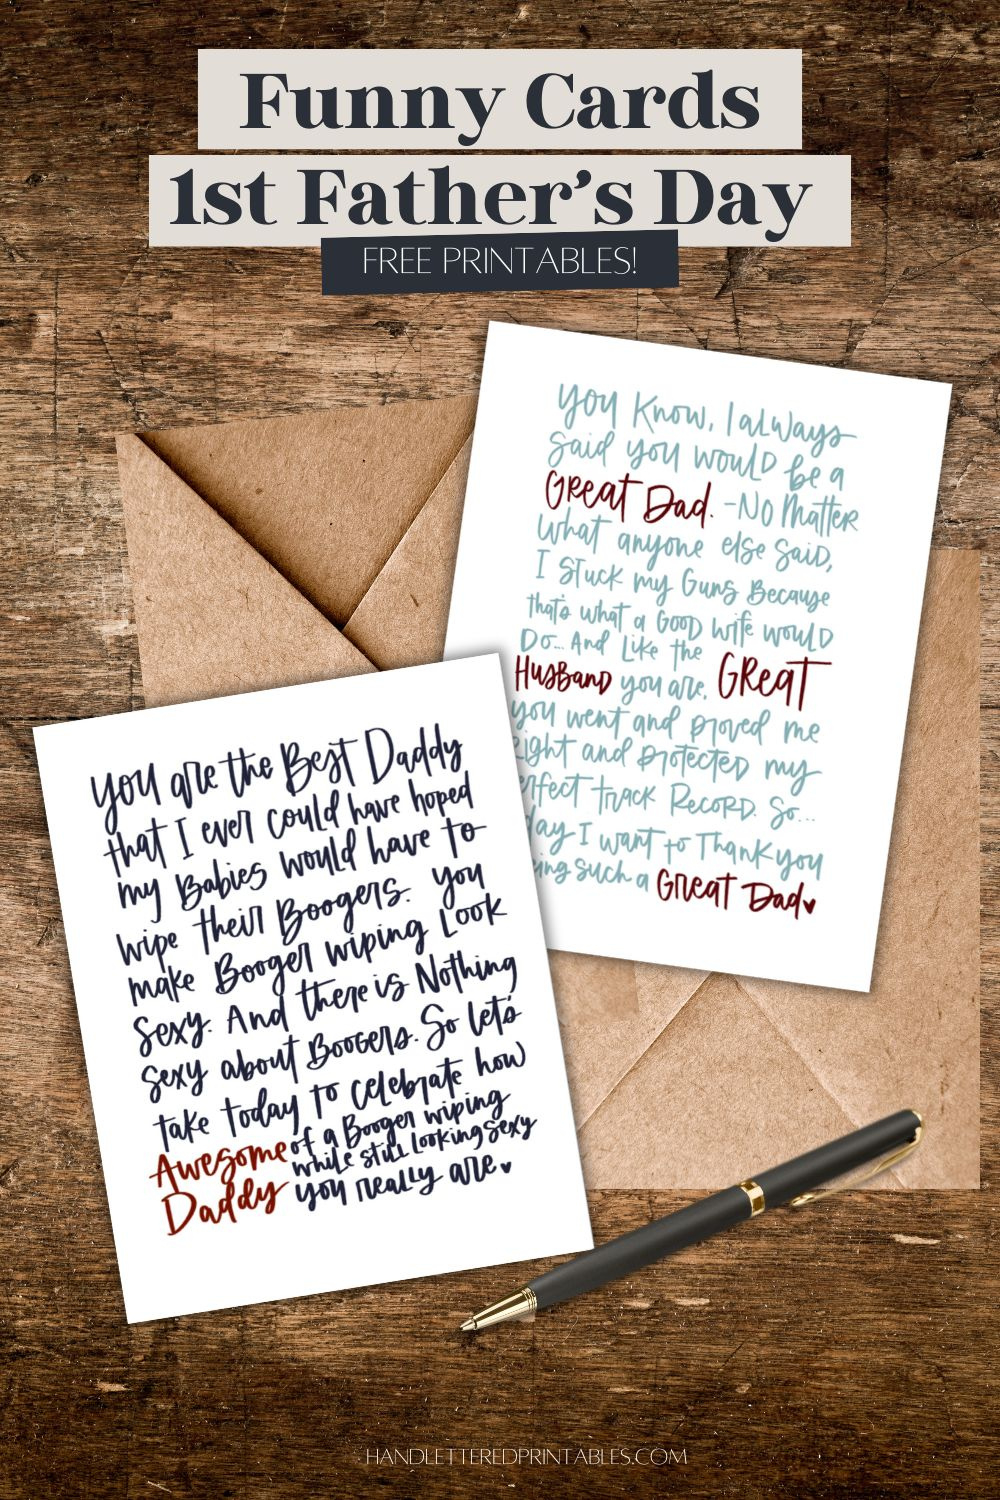 Funny Cards
1st Father's Day
FREE PRINTABLES!
You Know, I always
Said you would be a
Great Dad. -No Matter
what anyone else said,
I stuck my Guns Because
that's what a Good wife would
Do... And Like the
Husband you are, GREAT
you went and proved me
right and protected my
erfect track Record. So...
day I want to Thank you
ing such a Great Dad
You are the Best Daddy
that I ever could have hoped
my Babies would have to
wipe their Boogers. You
make Booger wiping Look
Sexy. And there is Nothing
sexy about Boogers. So let's
take today to celebrate how
Awesome of a Booger wiping
while still looking sexy
Daddy you really are.
HANDLETTEREDPRINTABLES.COM